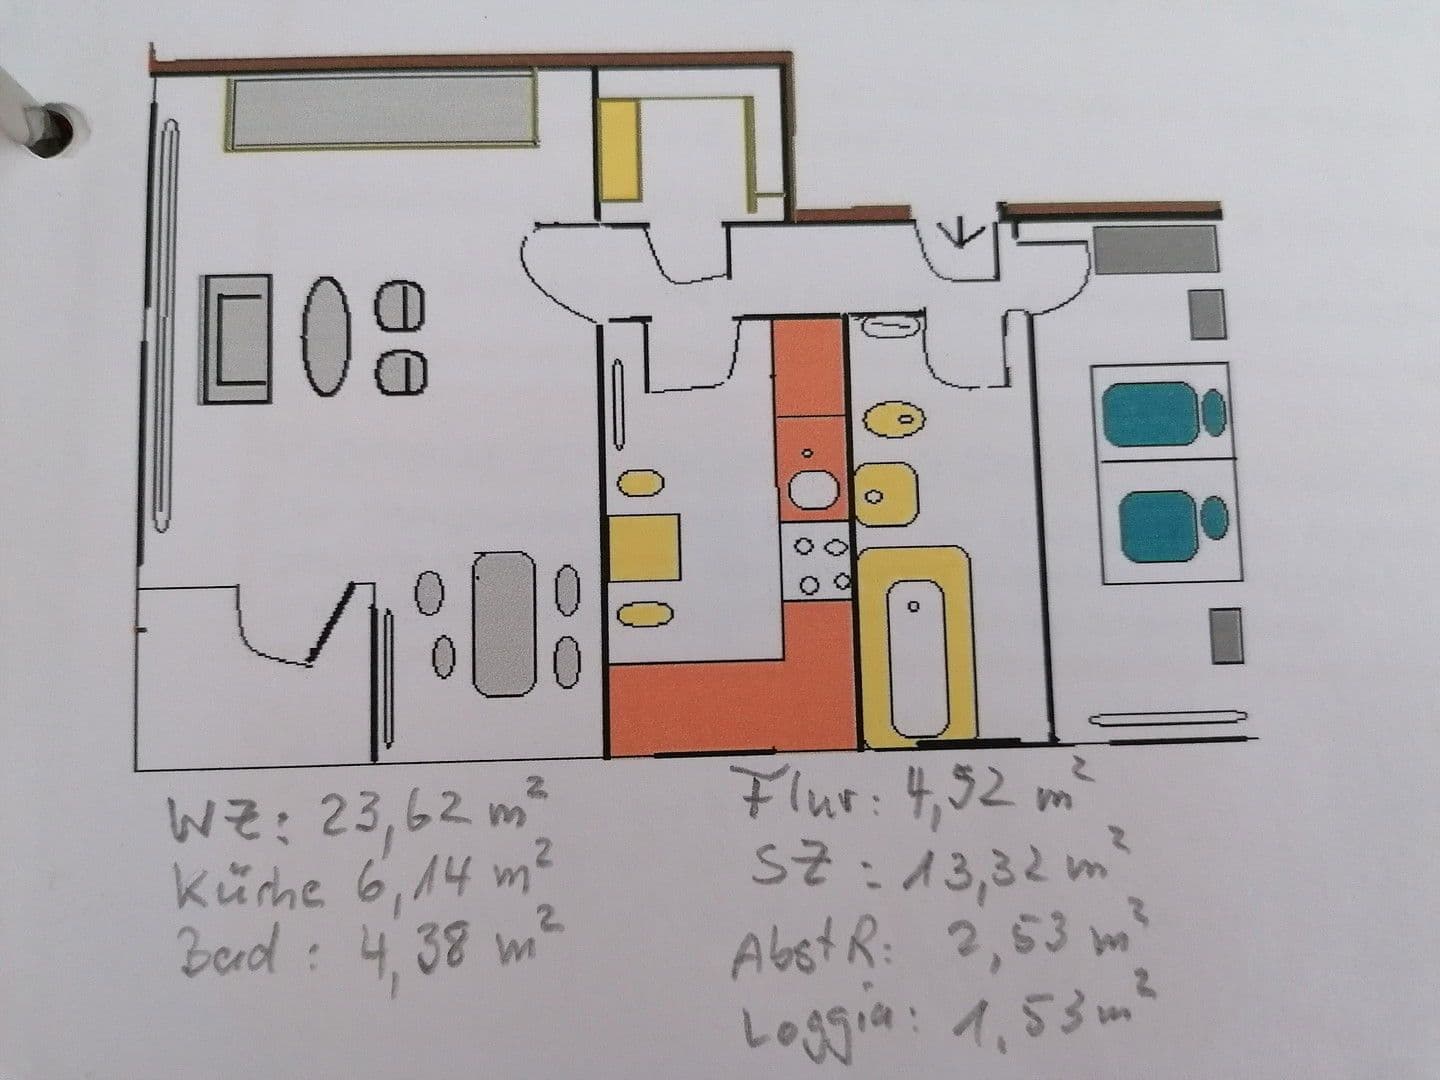 WZ: 23,62 m²
Küche 6,14 m²
Bad: 4,38 m²
Flur: 4,92 m²
SZ: 13,32 m²
AbstR: 2,53 m²
Loggia: 1,53 m²